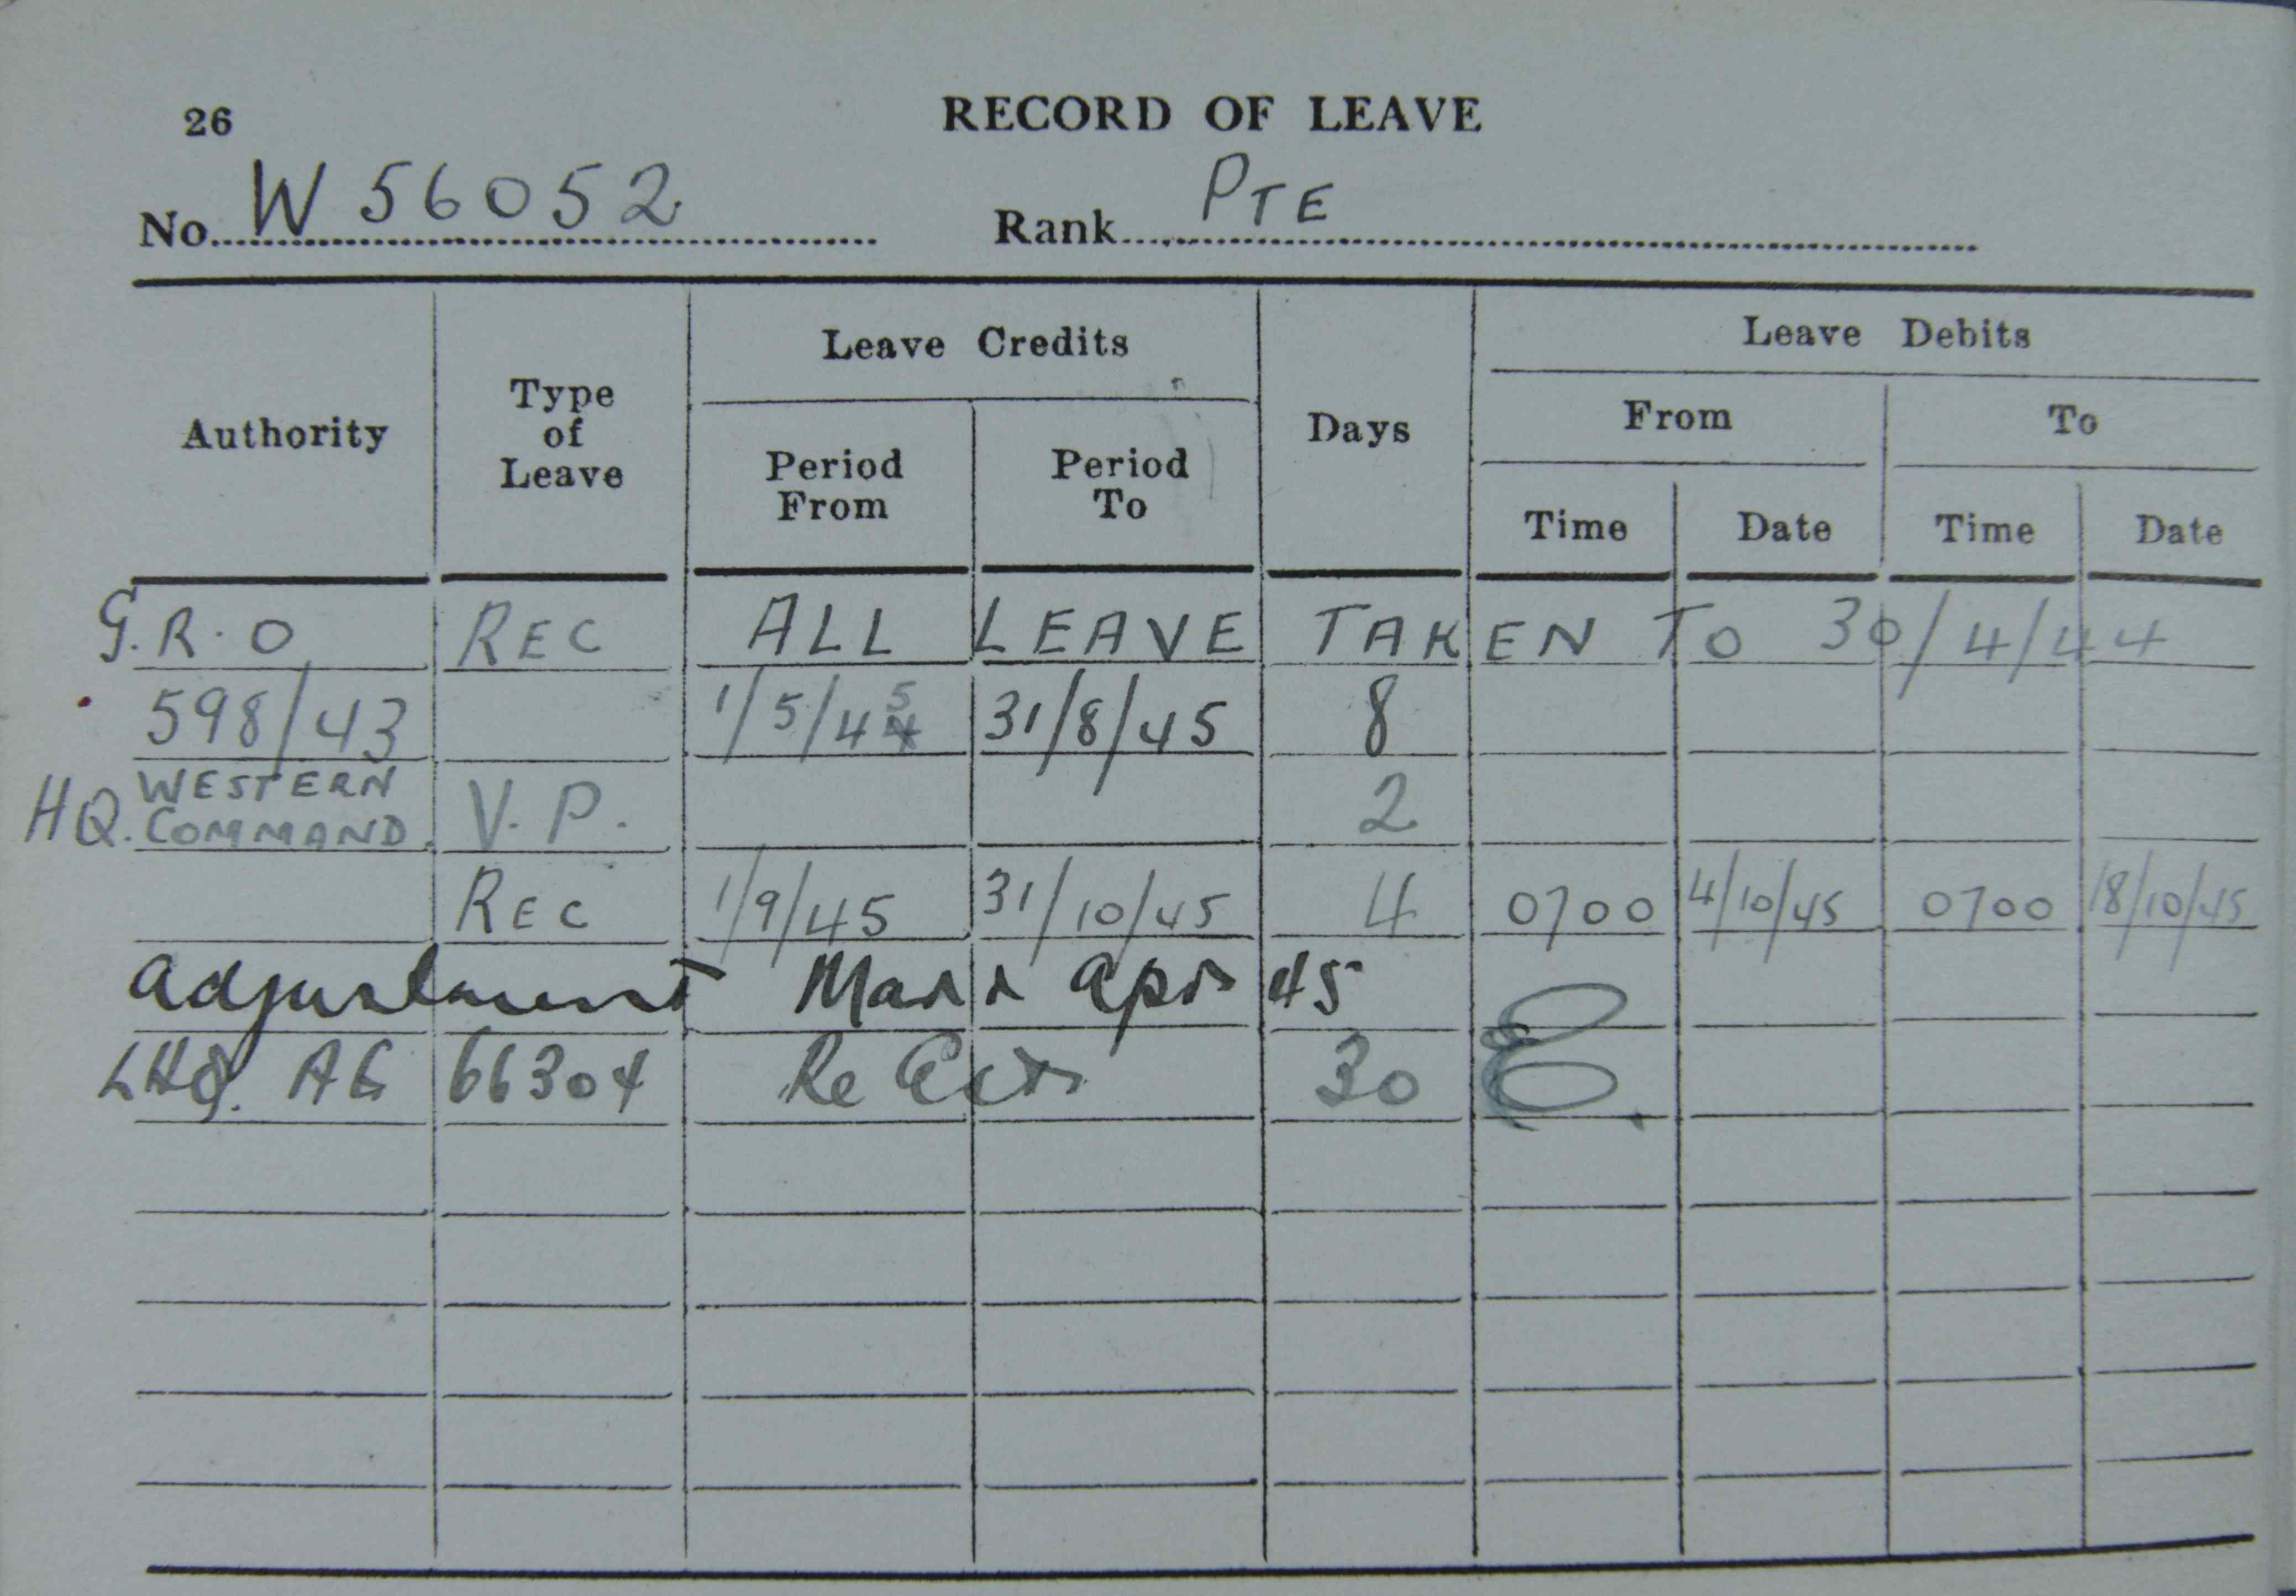 26
RECORD OF LEAVE
No. W 56052 Rank PTE
Authority Type of Leave Leave Credits Days Leave Debits
Period From Period To From To
Time Date Time Date
G.R.O REC ALL LEAVE TAKEN TO 30/4/44
598/43 1/5/45 31/8/45 8
HQ. WESTERN COMMAND. V.P. 2
REC 1/9/45 31/10/45 4 0700 4/10/45 0700 18/10/45
adjustment Mar & Apr 45
LHQ. AG 66304 30